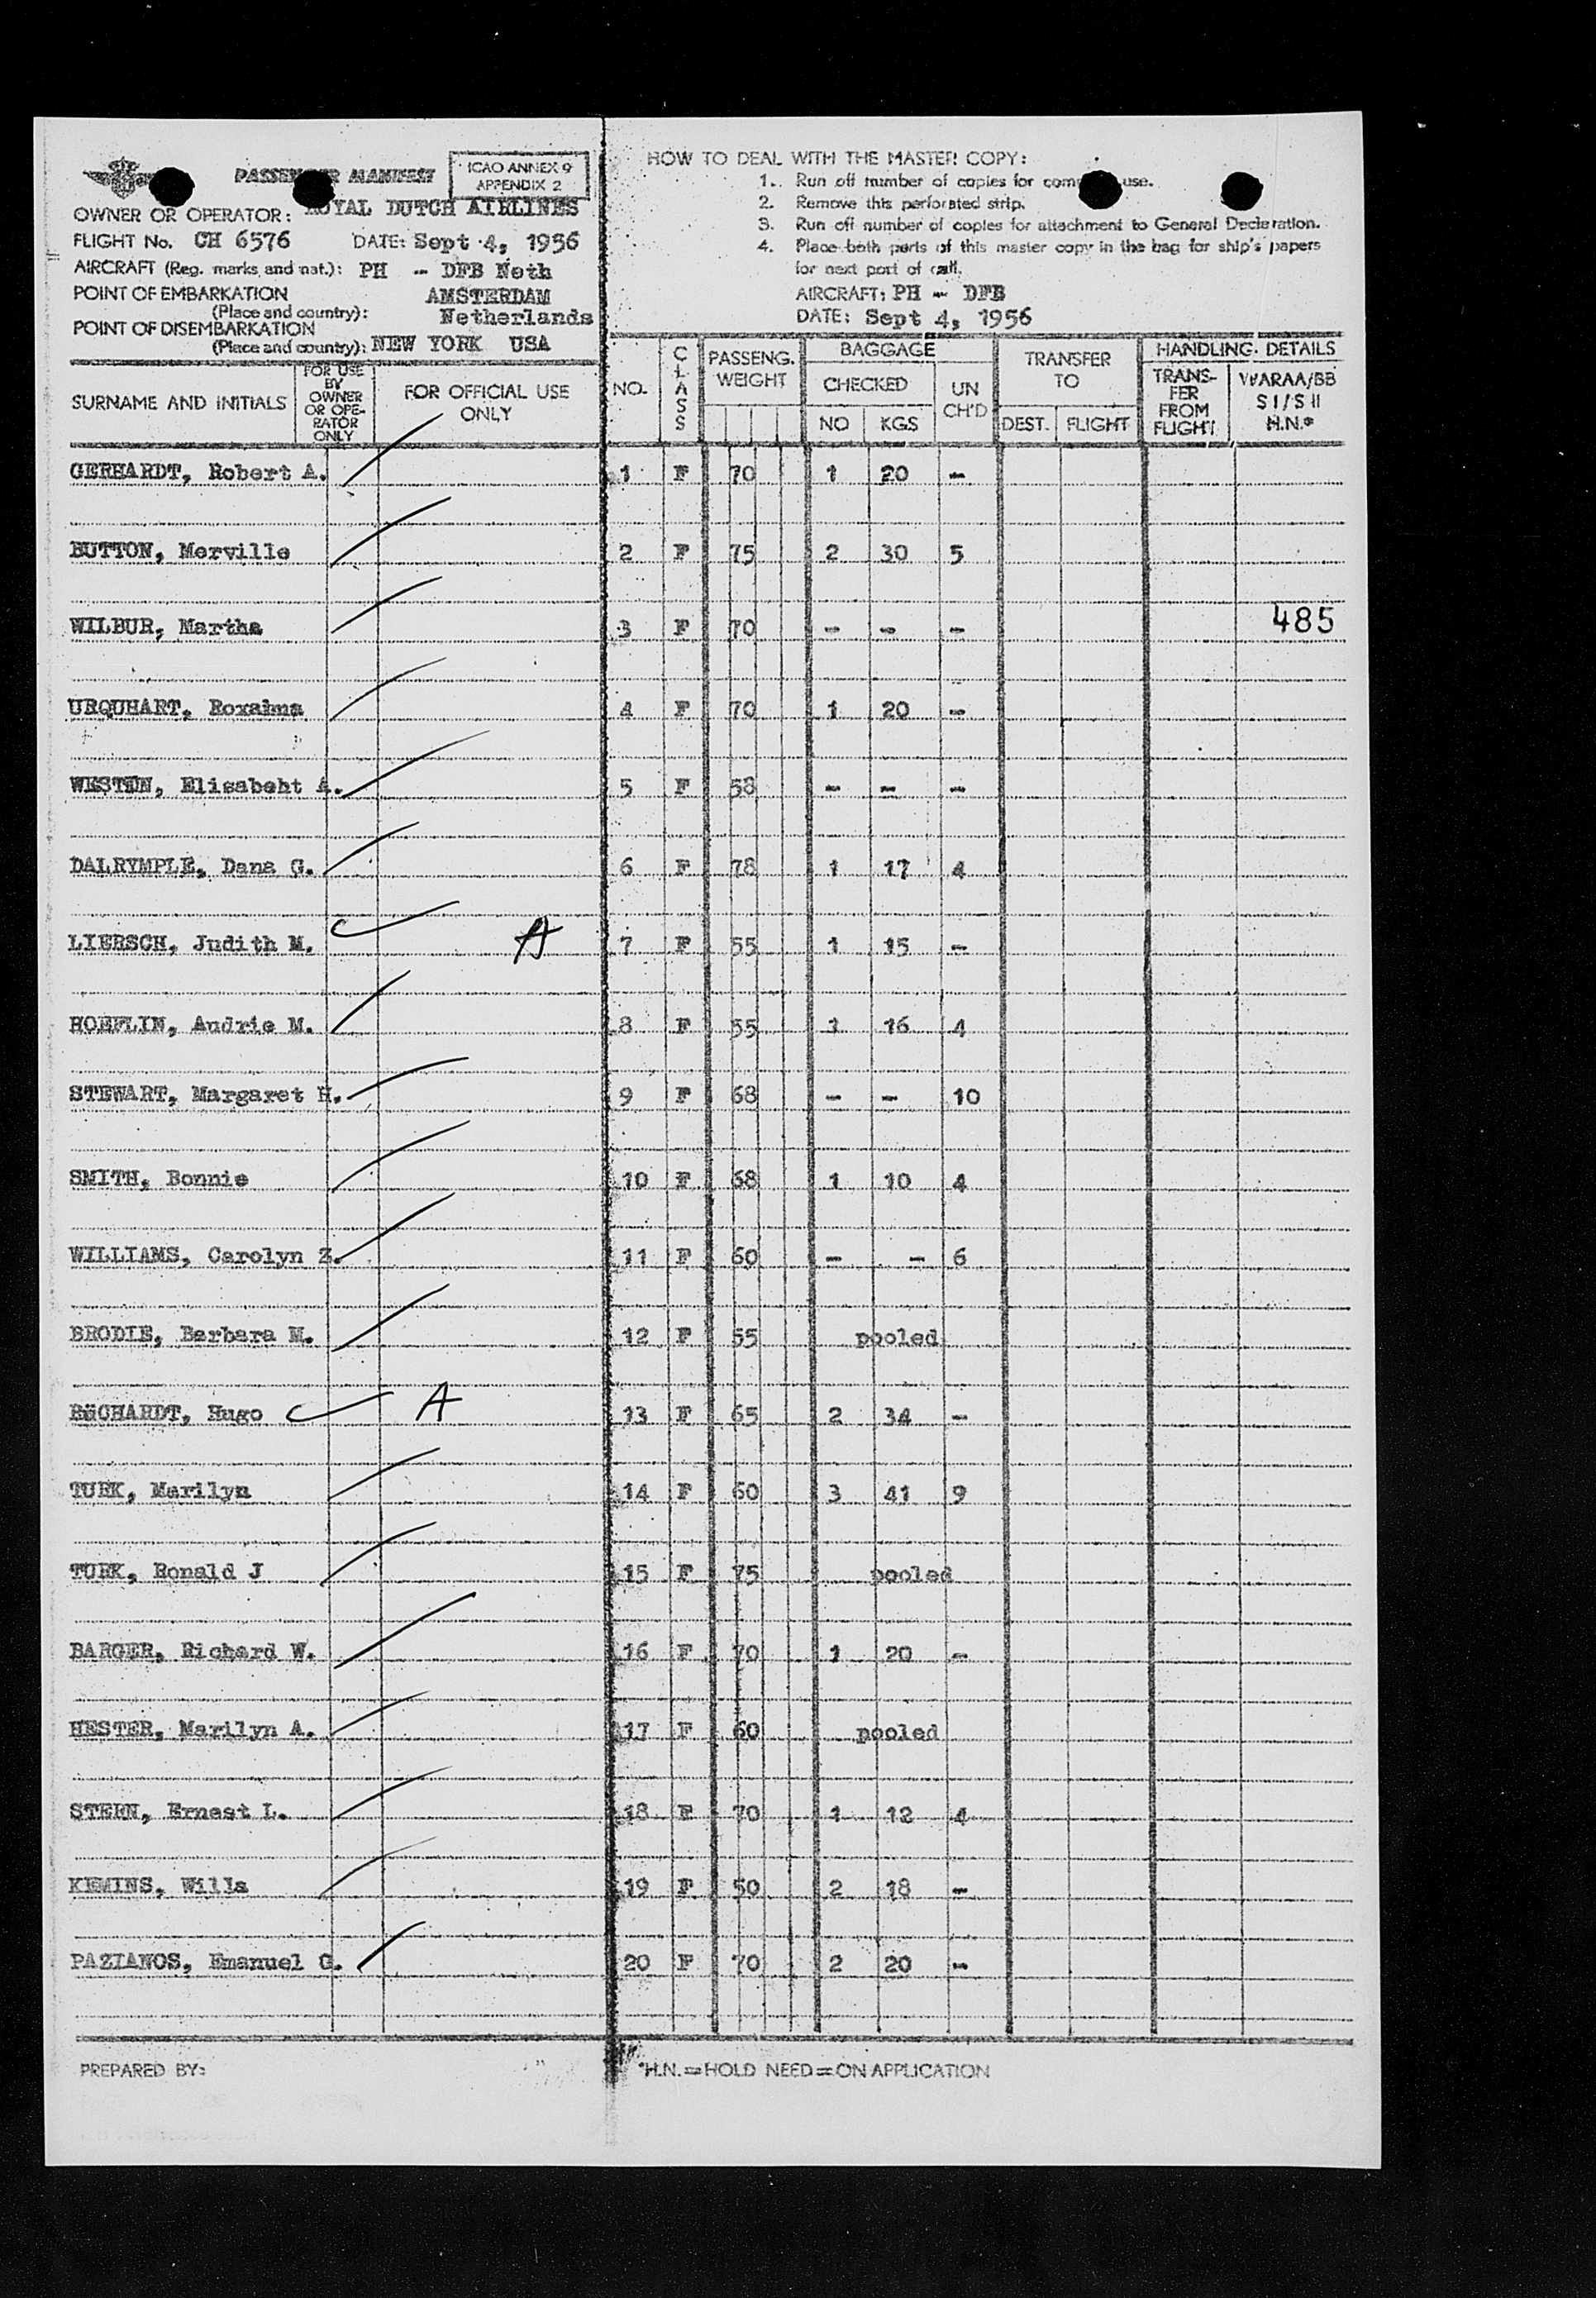 PASSENGER MANIFEST
ICAO ANNEX 9
APPENDIX 2
OWNER OR OPERATOR: ROYAL DUTCH AIRLINES
FLIGHT No. CH 6576 DATE: Sept 4, 1956
AIRCRAFT (Reg. marks and nat.): PH - DFB Neth
POINT OF EMBARKATION AMSTERDAM
(Place and country): Netherlands
POINT OF DISEMBARKATION
(Place and country): NEW YORK USA
HOW TO DEAL WITH THE MASTER COPY:
1. Run off number of copies for use.
2. Remove this perforated strip.
3. Run off number of copies for attachment to General Declaration.
4. Place both parts of this master copy in the bag for ship's papers
for next port of call.
AIRCRAFT: PH - DFB
DATE: Sept 4, 1956
SURNAME AND INITIALS FOR USE BY OWNER OR OPE-RATOR ONLY FOR OFFICIAL USE ONLY NO. CLASS PASSENG. WEIGHT BAGGAGE CHECKED NO KGS UN CH'D TRANSFER TO DEST. FLIGHT HANDLING DETAILS TRANS-FER FROM FLIGHT WARAA/BB S I/S II H.N.*
GERHARDT, Robert A. 1 F 70 1 20 -
BUTTON, Merville 2 F 75 2 30 5
WILBUR, Martha 3 F 70 - - - 485
URQUHART, 4 F 70 1 20 -
WESTEN, Elisabeht A. 5 F 58 - - -
DALRYMPLE, Dana G. 6 F 78 1 17 4
LIERSCH, Judith M. A 7 F 55 1 15 -
HOEFLIN, Audrie M. 8 F 55 1 16 4
STEWART, Margaret H. 9 F 68 - - 10
SMITH, Bonnie 10 F 68 1 10 4
WILLIAMS, Carolyn Z. 11 F 60 - - 6
BRODIE, Barbara M. 12 F 55 pooled
Hugo A 13 F 65 2 34 -
TURK, Marilyn 14 F 60 3 41 9
TURK, Ronald J 15 F 75 pooled
BARGER, Richard W. 16 F 70 1 20 -
HESTER, Marilyn A. 17 F 60 pooled
STERN, Ernest L. 18 F 70 1 12 4
KEMINS, Willa 19 F 50 2 18 -
PAZIANOS, Emanuel G. 20 F 70 2 20 -
PREPARED BY:
*H.N. = HOLD NEED = ON APPLICATION